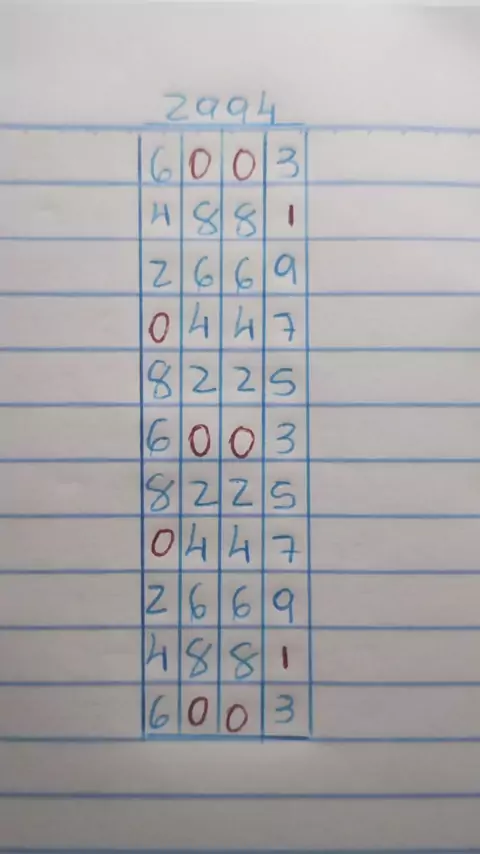 2994
6 0 0 3
4 8 8 1
2 6 6 9
0 4 4 7
8 2 2 5
6 0 0 3
8 2 2 5
0 4 4 7
2 6 6 9
4 8 8 1
6 0 0 3